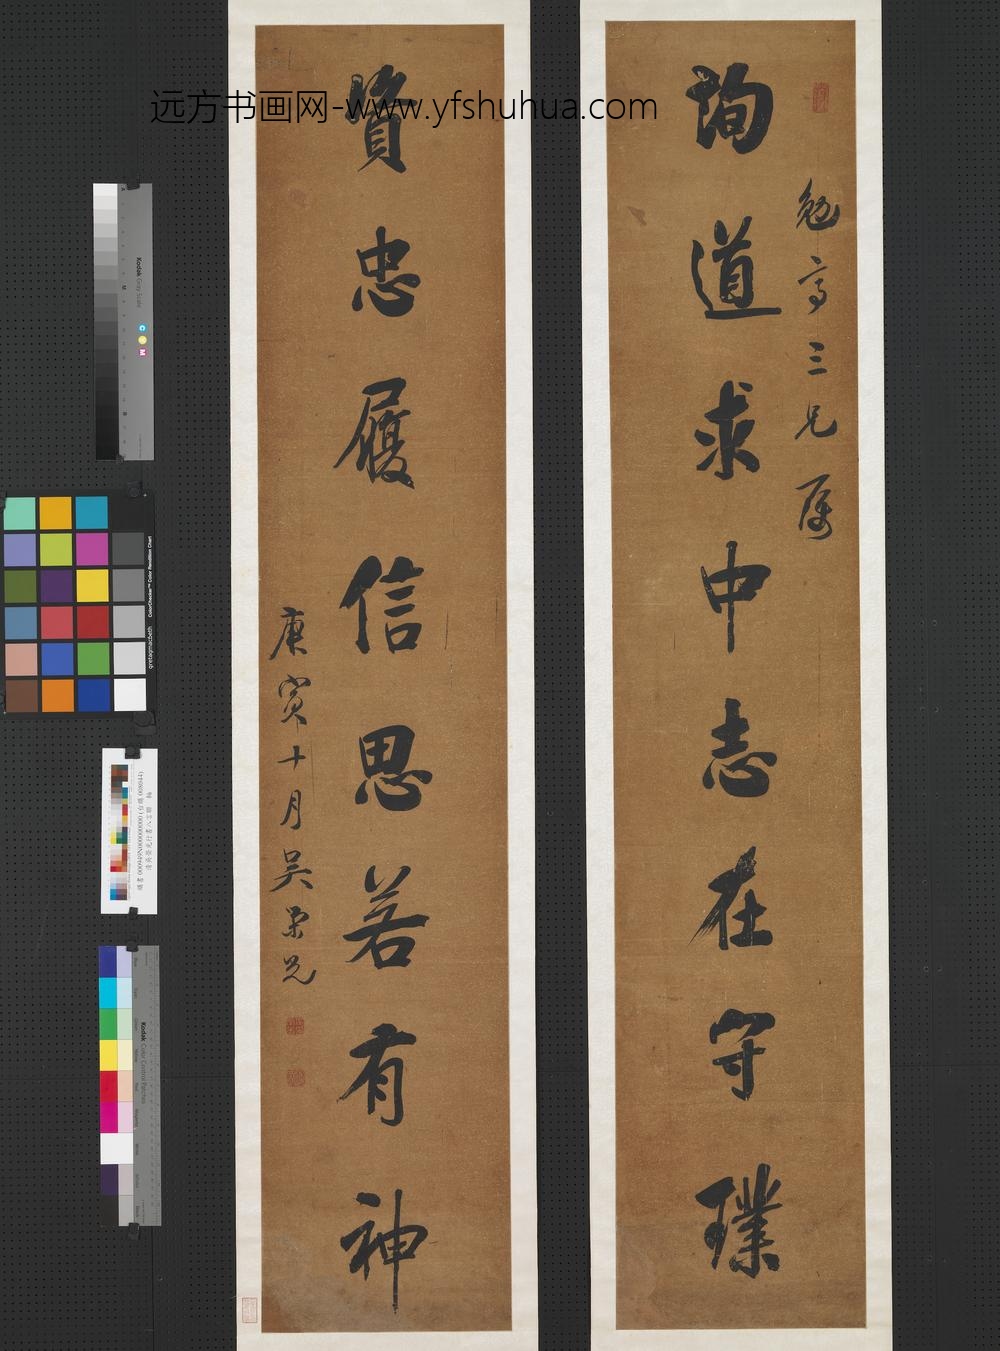 远方书画网-www.yfshuhua.com
勉高三兄属
珣道求中志在守璞
資忠履信思若有神
庚寅十月吴榮光
Kodak Gray Scale
C Y M
ColorChecker™ Color Rendition Chart
gretagmacbeth
清吳榮光行書八言聯 軸
Kodak Color Control Patches